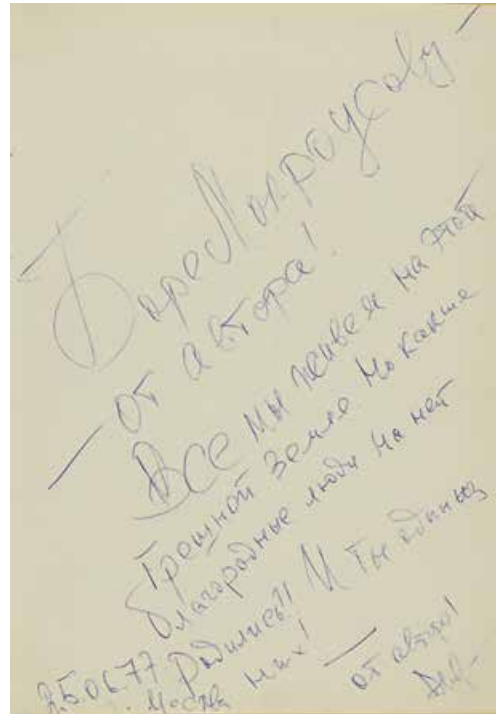 Боре Мокроусову —
— от автора!
Все мы живём на этой
грешной земле. Но какие
благородные люди на ней
родились!! И ты один из
них! — от автора!
25.06.77
Москва